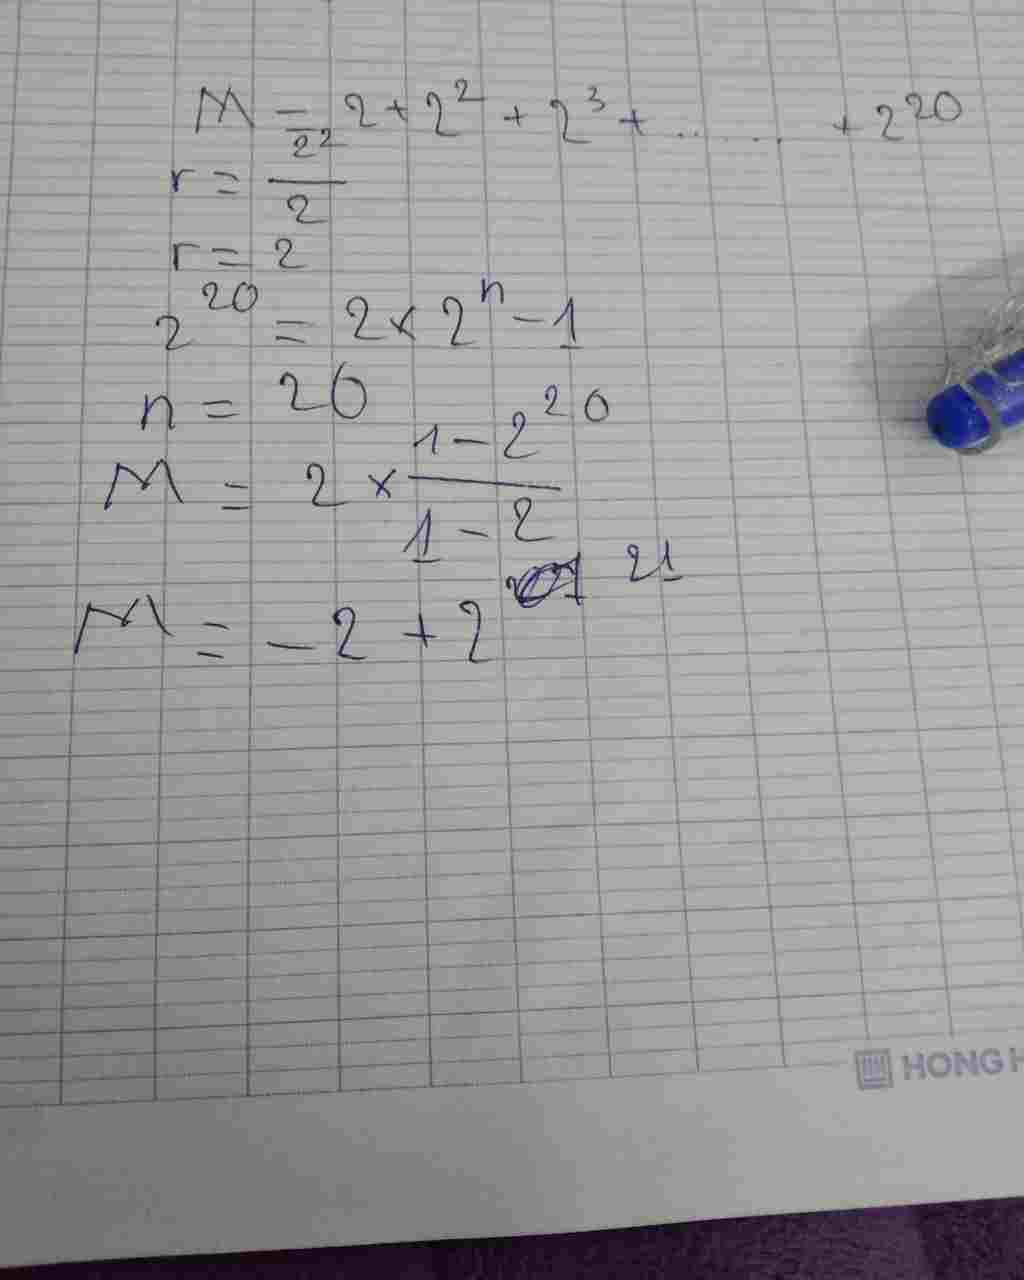 M = 2 + 2² + 2³ + ...... + 2²⁰
r = 2²/2
r = 2
2²⁰ = 2 × 2ⁿ - 1
n = 20
M = 2 × (1 - 2²⁰)/(1 - 2)
M = - 2 + 2²¹
HONG H